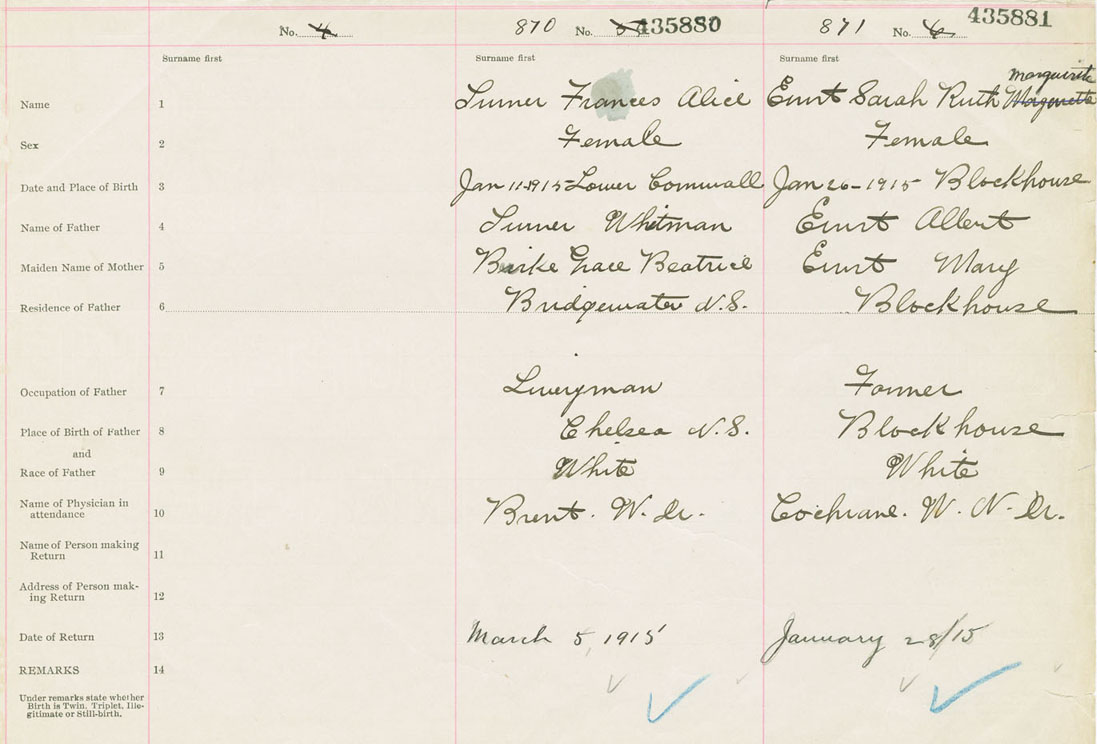 No. 4 870 No. 5 435880 871 No. 6 435881
Surname first Surname first Surname first
Marguerite
Name 1 Turner Frances Alice Ernst Sarah Ruth Margaretta
Sex 2 Female Female
Date and Place of Birth 3 Jan 11-1915-Lower Cornwall Jan 26-1915 Blockhouse
Name of Father 4 Turner Whitman Ernst Albert
Maiden Name of Mother 5 Burke Grace Beatrice Ernst Mary
Residence of Father 6 Bridgewater N.S. Blockhouse
Occupation of Father 7 Liveryman Farmer
Place of Birth of Father 8 Chelsea N.S. Blockhouse
and
Race of Father 9 White White
Name of Physician in
attendance 10 Brent. W. Dr. Cochrane. W. N. Dr.
Name of Person making
Return 11
Address of Person mak-
ing Return 12
Date of Return 13 March 5, 1915 January 28/15
REMARKS 14
Under remarks state whether
Birth is Twin, Triplet, Ille-
gitimate or Still-birth.